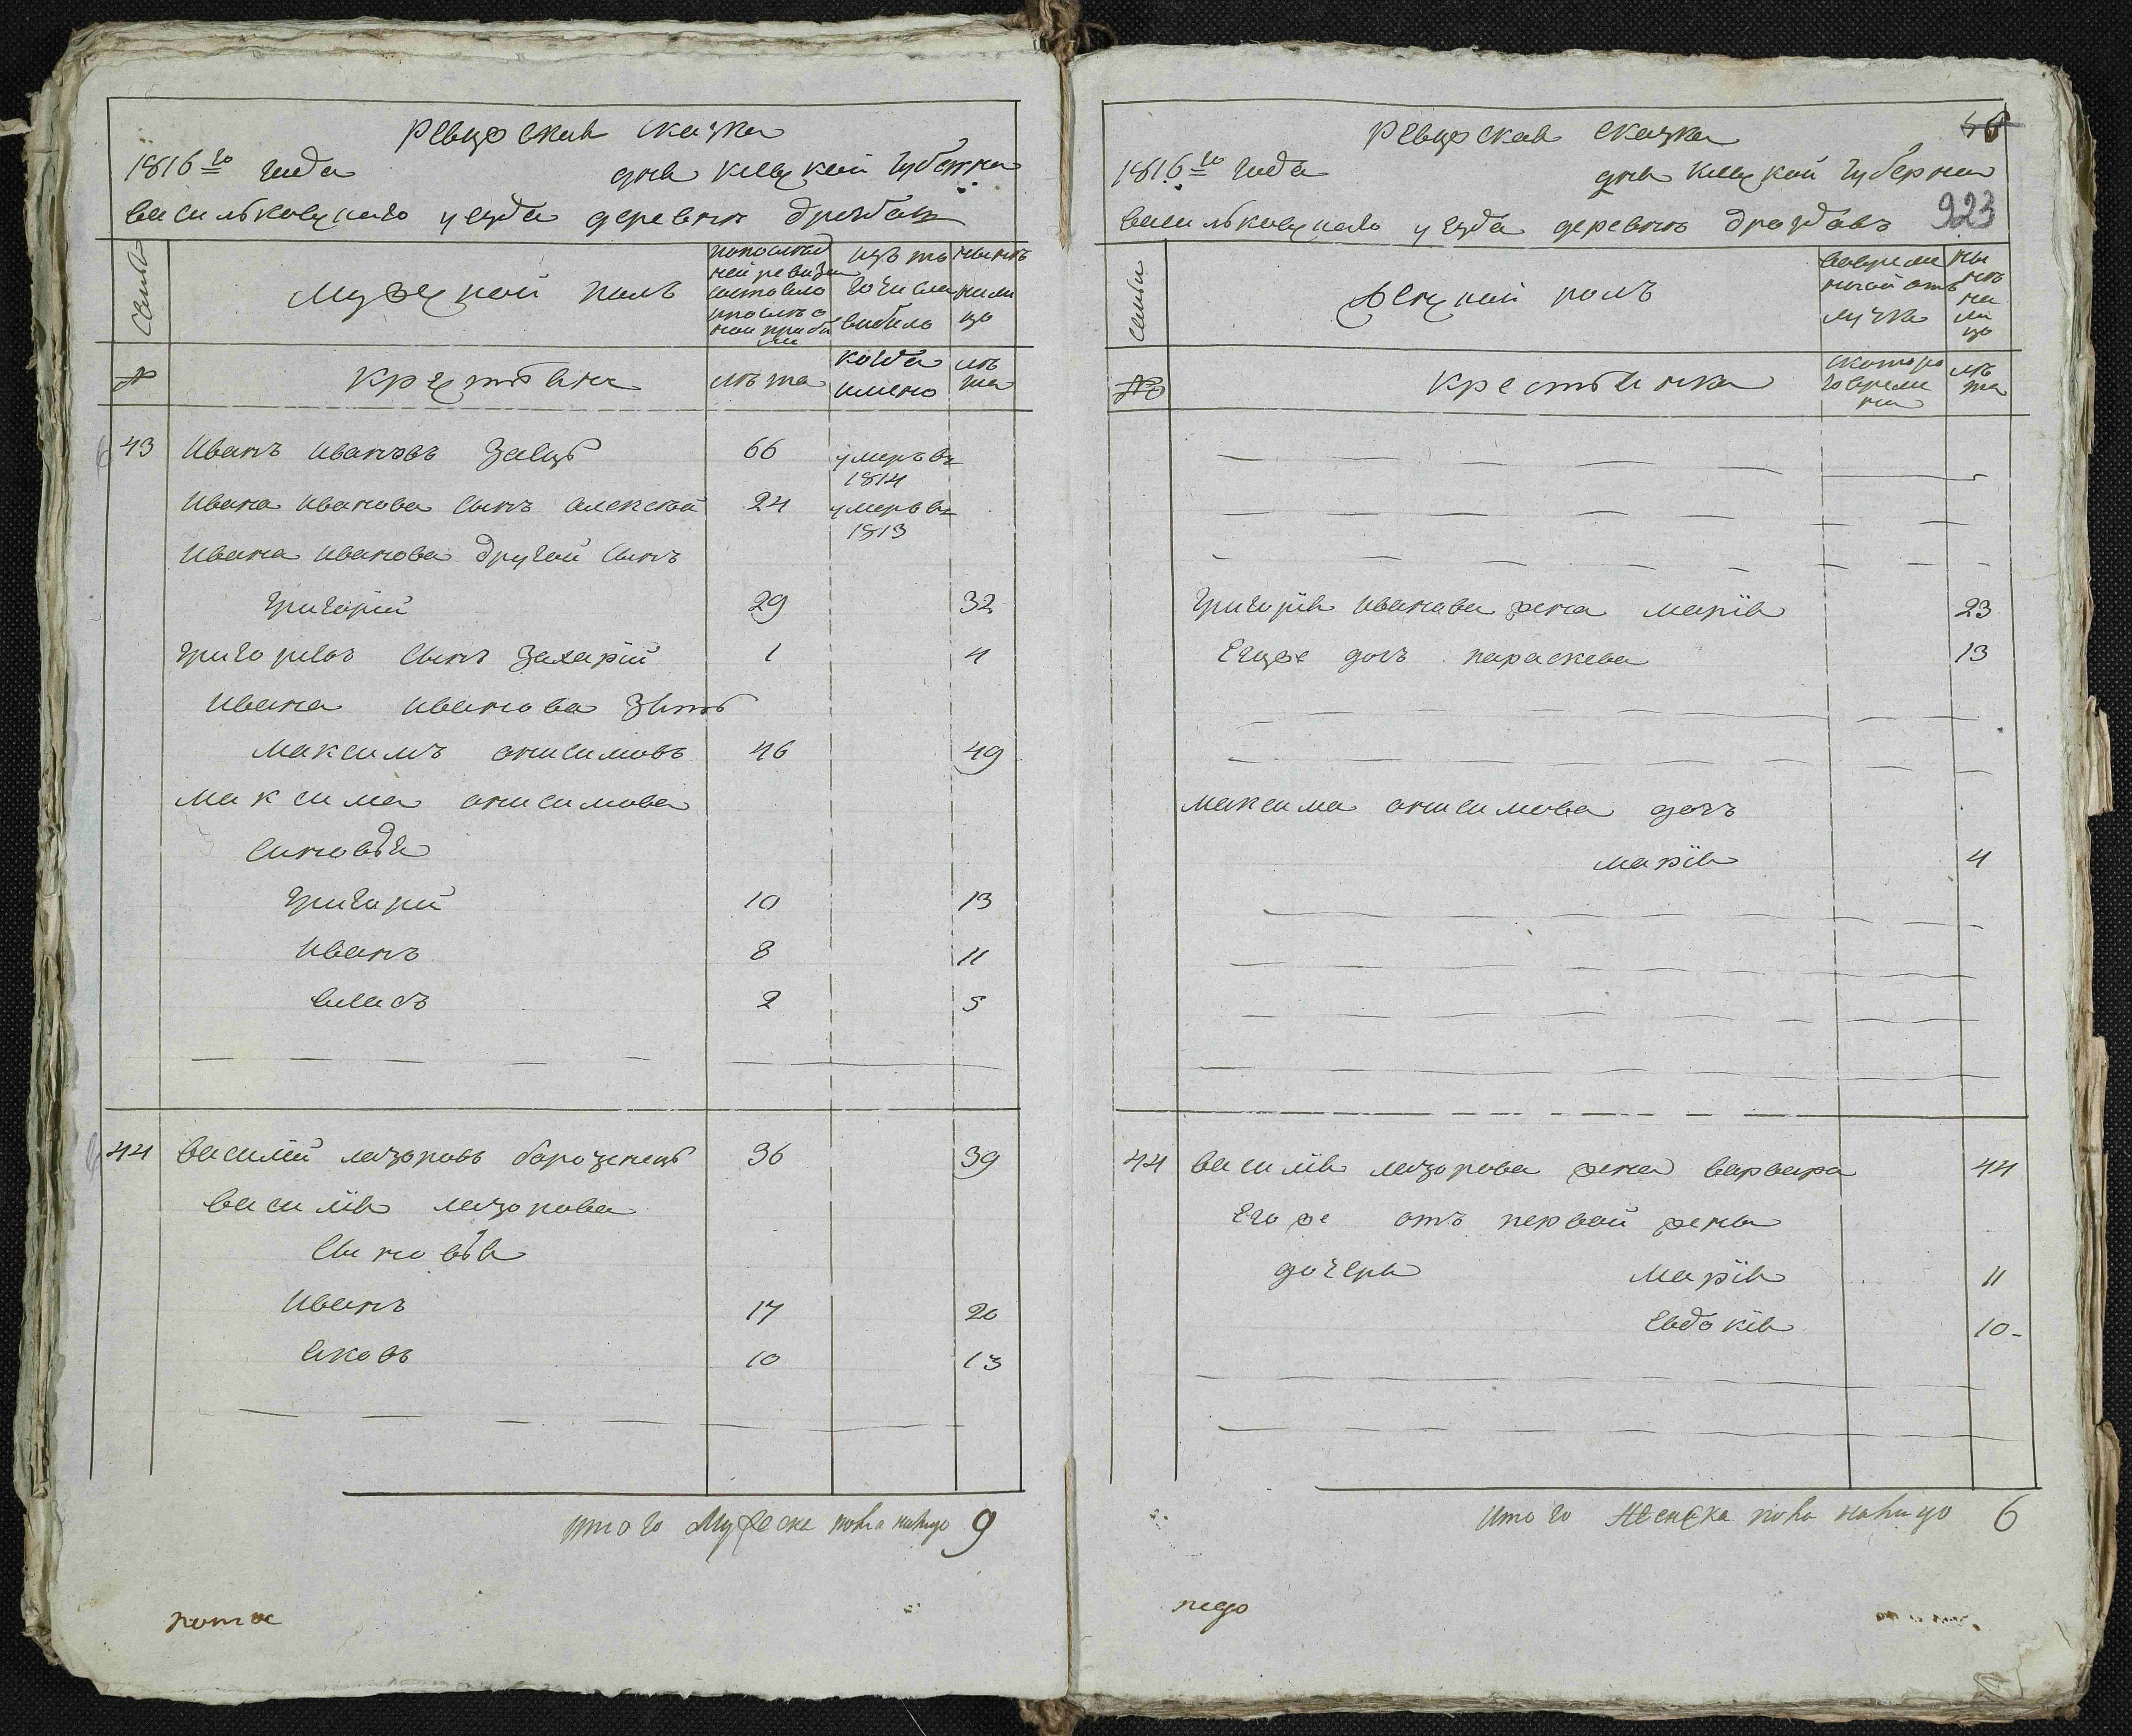 Ревизская сказка
1816го года дня Киевской губернии
Васильковского уезда деревни Дроздовъ
Семьи
Мужеской полъ
по последней ревизии состояло и после оной прибыли
изъ того числа выбыло
ныне на лицо
№
Крестьяне
лѣта
когда имено
лѣта
43 Иванъ Ивановъ Заецъ 66 умеръ въ 1814
Ивана Иванова сынъ Алексѣй 24 умеръ въ 1813
Ивана Иванова другой сынъ
Григорій 29 32
Григоріевъ сынъ Захарій 1 4
Ивана Иванова зять
Максимъ Онисимовъ 46 49
Максима Онисимова
сыновья
Григорій 10 13
Иванъ 8 11
Власъ 2 5
44 Василій Лазоровъ Борозенецъ 36 39
Василія Лазорова
сыновья
Иванъ 17 20
Яковъ 10 13
итого мужеска пола налицо 9
Ревизская сказка
1816го года дня Киевской губернии
923
Васильковского уезда деревни Дроздовъ
Семьи
Женский полъ
во временной отлучке
ныне на лицо
№
Крестьянка
с которого времени
лѣта
Григорія Иванова жена Марія 23
Его же дочь Параскева 13
Максима Онисимова дочь
Марія 4
44 Василія Лазорова жена Варвара 44
Его же отъ первой жены
дочери Марія 11
Евдокія 10
итого женска пола налицо 6